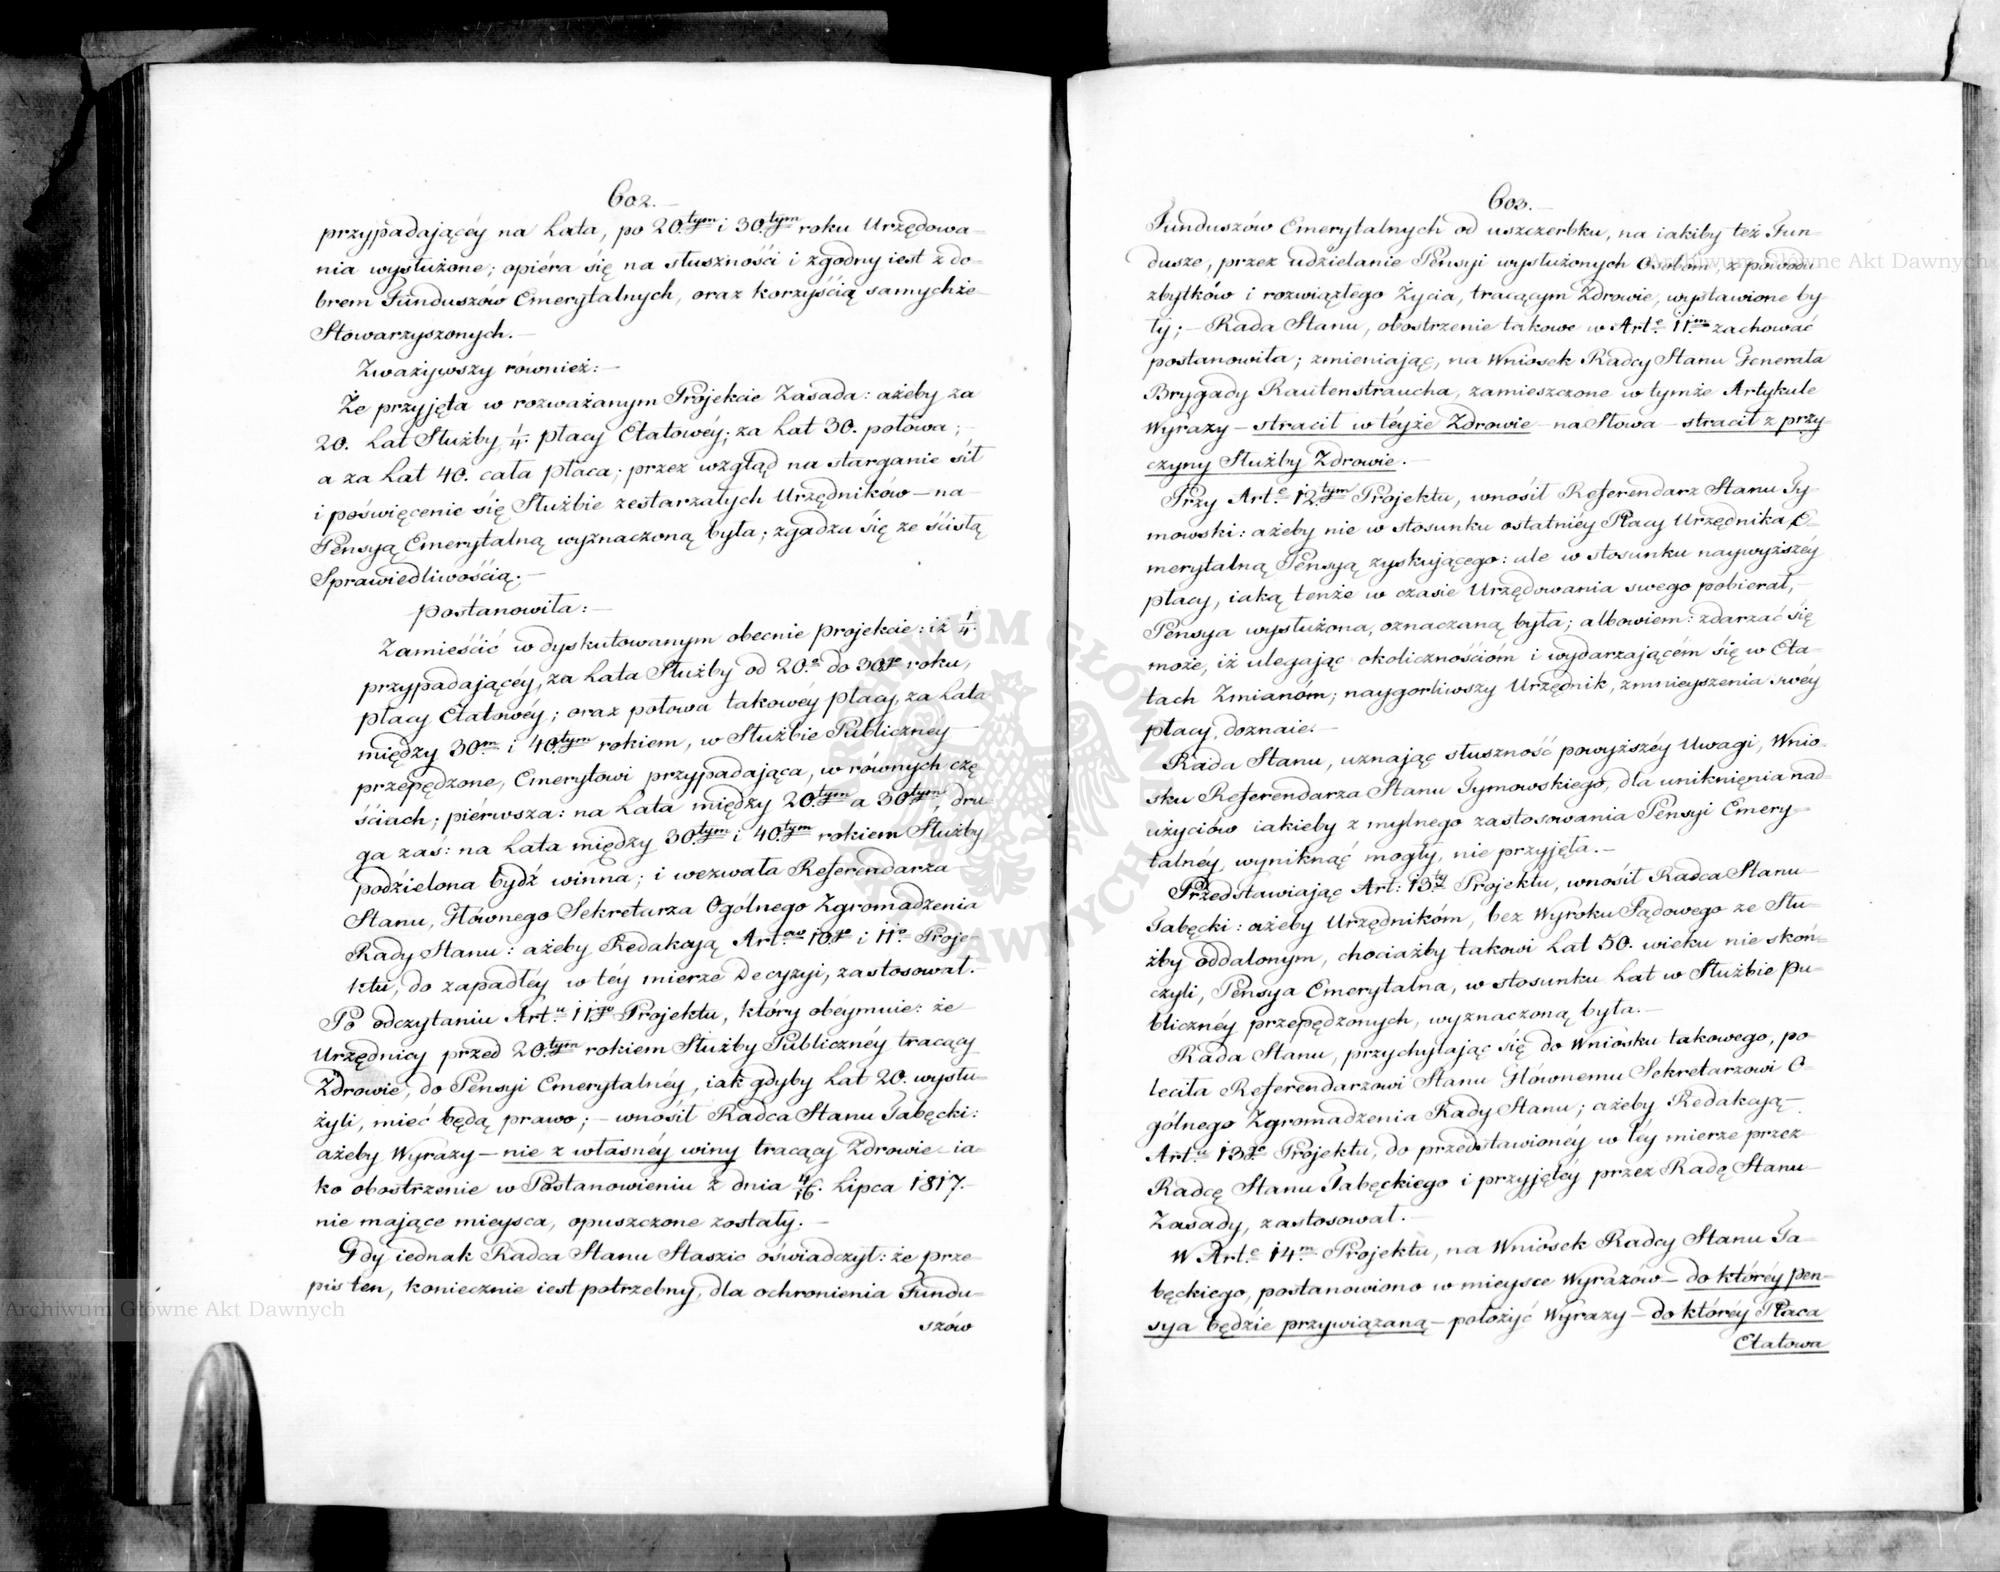 602.
przypadaiącéy na Lata, po 20.tym i 30.tym roku Urzędowa-
nia wysłużone; opiéra się na słuszności i zgodny iest z do-
brem Funduszów Emerytalnych, oraz korzyścią samychże
Stowarzyszonych.-
Zważywszy również:-
Że przyjęta w rozważanym Projekcie Zasada: ażeby za
20. Lat Służby, 1/4. płacy Etatowéy; za Lat 30. połowa;
a za Lat 40. cała płaca; przez wzgląd na starganie sił
i poświęcenie się Służbie zestarzałych Urzędników-na-
Pensyą Emerytalną wyznaczoną była; zgadza się ze ścisłą
Sprawiedliwością.-
postanowiła:-
Zamieścić w dyskutowanym obecnie projekcie: iż 1/4.
przypadaiącéy, za Lata Służby od 20.o do 30.go roku,
płacy Etatowéy; oraz połowa takowéy płacy, za Lata
między 30.m i 40.tym rokiem, w Służbie Publicznéy
przepędzone, Emerytowi przypadaiąca, w równych czę-
ściach; piérwsza: na Lata między 20.tym a 30.tym, dru-
ga zas: na Lata między 30.tym i 40.tym rokiem Służby
podzielona bydź winna; i wezwała Referendarza
Stanu, Głównego Sekretarza Ogólnego Zgromadzenia
Rady Stanu: ażeby Redakcyą Art.ów 10.go i 11.o Proje-
ktu, do zapadłéy w téy mierze Decyzyi, zastosował.-
Po odczytaniu Art.u 11.go Projektu, który obéymuie: że
Urzędnicy przed 20.tym rokiem Służby Publicznéy tracący
Zdrowie, do Pensyi Emerytalnéy, iak gdyby Lat 20. wysłu-
żyli, mieć będą prawo; - wnosił Radca Stanu Gabęcki:
ażeby Wyrazy - nie z własnéy winy tracący Zdrowie - ia-
ko obostrzenie w Postanowieniu z dnia 4/16. Lipca 1817.-
nie maiące mieysca, opuszczone zostały.-
Gdy iednak Radca Stanu Staszic oświadczył: że prze-
pis ten, koniecznie iest potrzebny, dla ochronienia Fundu-
szów
603.
Funduszów Emerytalnych od uszczerbku, na iakiby też Fun-
dusze, przez udzielanie Pensyi wysłużonych Osobóm, z powodu
zbytków i rozwiązłego Życia, tracącym Zdrowie, wystawione by-
ły; - Rada Stanu, obostrzenie takowe w Art.e 11.m zachować
postanowiła; zmieniaiąc, na Wniosek Radcy Stanu Generała
Brygady Rautenstraucha, zamieszczone w tymże Artykule
Wyrazy - stracił w téyże Zdrowie - na Słowa - stracił z przy-
czyny Służby Zdrowie.-
Przy Art.e 12.tym Projektu, wnosił Referendarz Stanu Ty-
mowski: ażeby nie w stosunku ostatniéy Płacy Urzędnika E-
merytalną Pensyą zyskuiącego: ale w stosunku naywyższéy
płacy, iaką tenże w czasie Urzędowania swego pobierał,-
Pensya wysłużona, oznaczaną była; albowiem: zdarzać się
może, iż ulegaiąc okolicznościóm i wydarzaiącém się w Eta-
tach Zmianóm; naygorliwszy Urzędnik, zmnieyszenia swéy
płacy, doznaie.-
Rada Stanu, uznaiąc słuszność powyższéy Uwagi, Wnio-
sku Referendarza Stanu Tymowskiego, dla uniknięnia nad-
użyciów iakieby z mylnego zastosowania Pensyi Emery-
talnéy, wyniknąć mogły, nie przyjęła.-
Przedstawiaiąc Art: 13.ty Projektu, wnosił Radca Stanu
Gabęcki: ażeby Urzędnikóm, bez Wyroku Sądowego ze Słu-
żby oddalonym, chociażby takowi Lat 50. wieku nie skoń-
czyli, Pensya Emerytalna, w stosunku Lat w Służbie Pu-
blicznéy przepędzonych, wyznaczoną była.-
Rada Stanu, przychylaiąc się do Wniosku takowego, po-
leciła Referendarzowi Stanu Głównemu Sekretarzowi O-
gólnego Zgromadzenia Rady Stanu; ażeby Redakcyą-
Art.u 13.go Projektu, do przedstawionéy w téy mierze przez
Radcę Stanu Gabęckiego i przyjętéy przez Radę Stanu
Zasady, zastosował.-
W Art.e 14.m Projektu, na Wniosek Radcy Stanu Ga-
bęckiego, postanowiono w mieysce Wyrazów - do któréy Pen-
sya będzie przywiązaną - położyć Wyrazy - do któréy Płaca
Etatowa
Archiwum Główne Akt Dawnych
Archiwum Główne Akt Dawnych
ARCHIWUM GŁÓWNE AKT DAWNYCH